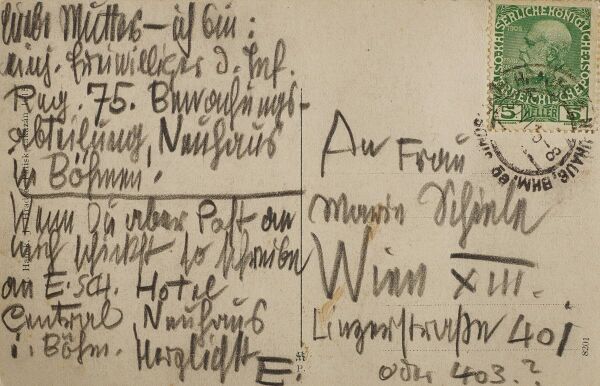 Liebe Mutter – ich bin:
einj. freiwilliger d. Inf.
Reg. 75. Bewachungs-
abteilung, Neuhaus
in Böhmen.
Wenn Du aber Post an
mich schickst so schreibe
an E. SCH. Hotel
Central Neuhaus
i. Böhm. Herzlichst
E.
An Frau
Marie Schiele
Wien XIII.
Linzerstraße 401
oder 403.?
KAISERLICHE KÖNIGLICHE
1908
ÖSTERREICHISCHE POST
5 HELLER 5
8201